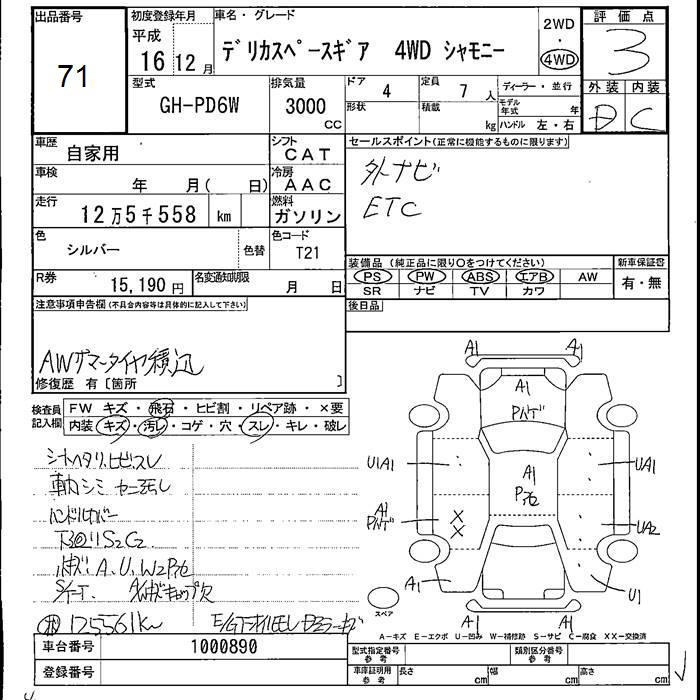 出品番号 初度登録年月 車名・グレード 2WD 評価点
平成 ・
71 16 年 12 月 デリカスペースギア 4WD シャモニー 4WD 3
型式 排気量 ドア 定員 ディーラー・並行 外装 内装
GH-PD6W 3000 CC 4 7 人 モデル年式 年 D C
形状 積載 kg ハンドル 左・右
車歴 自家用 シフト CAT セールスポイント(正常に機能するものに限ります)
車検 年 月( 日) 冷房 AAC 外ナビ
走行 12万5千558 km 燃料 ガソリン ETC
色 シルバー 色替 色コード T21
装備品(純正品に限り○をつけてください) 新車保証書
R券 15,190円 名変通知期限 月 日 PS PW ABS エアB AW 有・無
SR ナビ TV カワ
注意事項申告欄(不具合内容等は具体的に記入して下さい) 後日品
AWサマータイヤ積込
修復歴 有〔箇所 〕
検査員記入欄 FW キズ・飛石・ヒビ割・リペア跡・×要
内装 キズ・汚レ・コゲ・穴・スレ・キレ・破レ
シートヘタリ、ヒビ、スレ
車内シミ
ハンドルカバー
下回りS2C2
小キズA、U、W2
125561km
A1 A1
A1
A1
U1A1 UA1
A1 UA2
A1 U1
A1 A1
スペア
A-キズ E-エクボ U-凹み W-補修跡 S-サビ C-腐食 XX-交換済
車台番号 1000890 型式指定番号 参考 類別区分番号 参考
登録番号 車庫証明用 参考 長さ cm 幅 cm 高さ cm